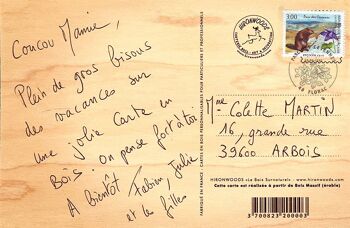 Coucou Mamie,
Plein de gros bisous
des vacances sur
une jolie carte en
Bois. on pense fort à toi
A bientôt Fabien, Julie
et les filles
CARTES EN BOIS PERSONNALISABLES POUR PARTICULIERS ET PROFESSIONNELS
HIRONWOODS
3,00
48 FLORAC
Me Colette MARTIN
16, grande rue
39600 ARBOIS
HIRONWOODS «Le Bois Surnaturel» www.hironwoods.com
Cette carte est réalisée à partir de Bois Massif (érable)
3 700823 200003